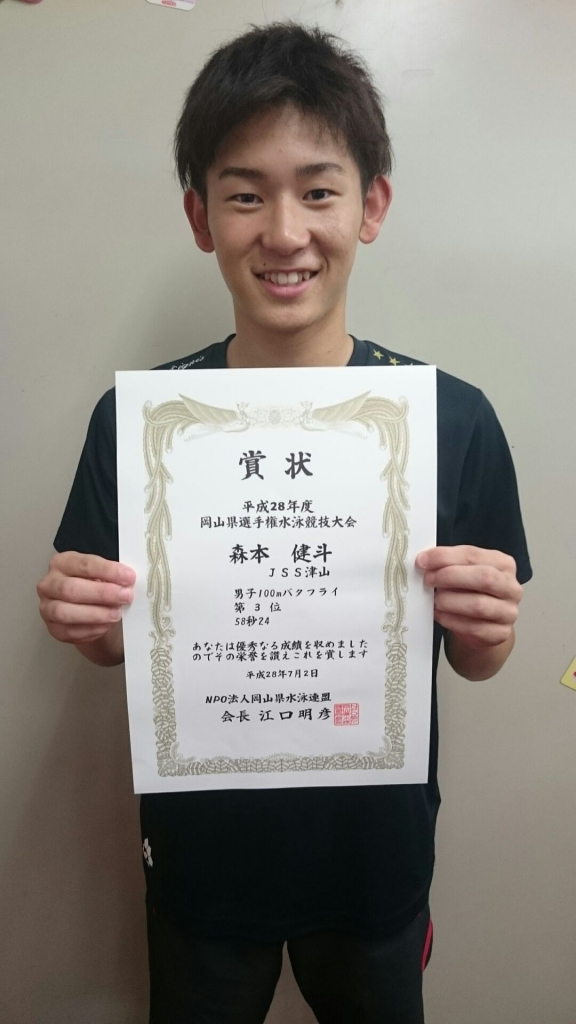 賞状
平成28年度
岡山県選手権水泳競技大会
森本 健斗
JSS津山
男子100mバタフライ
第 3 位
58秒24
あなたは優秀なる成績を収めました
のでその栄誉を讃えこれを賞します
平成28年7月2日
NPO法人岡山県水泳連盟
会長 江口明彦